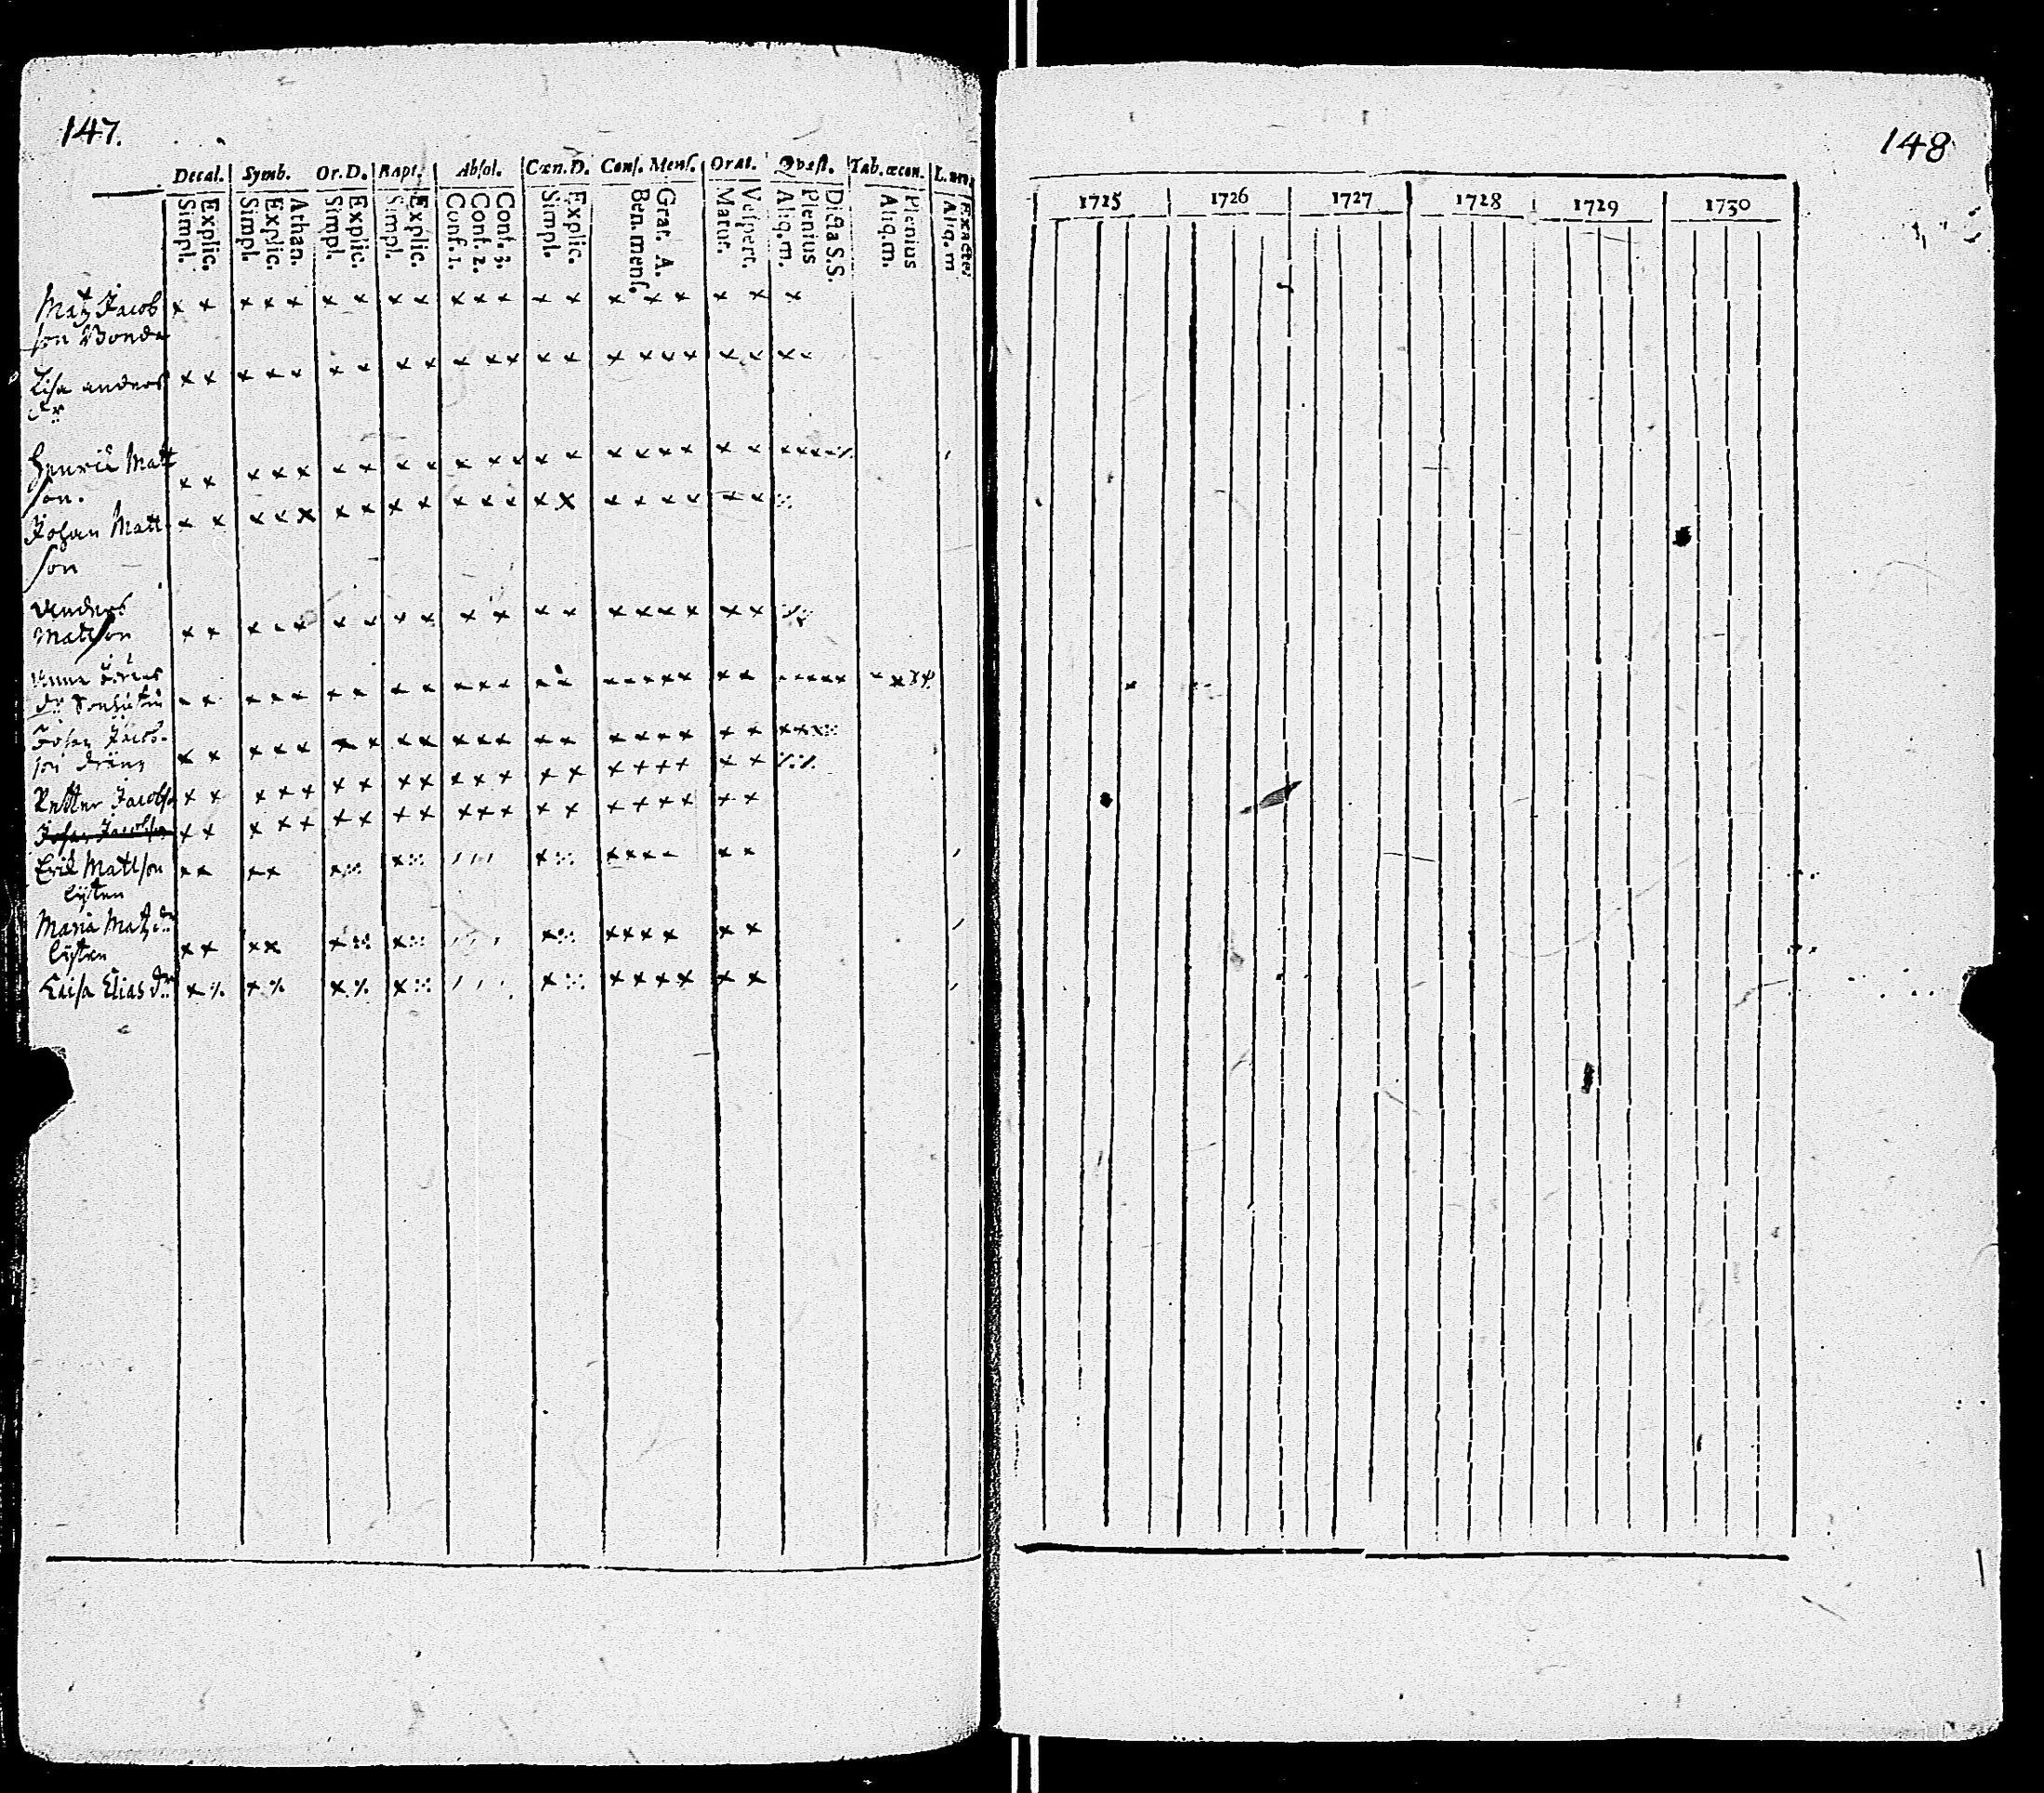 147.
Decal. Symb. Or.D. Bapt. Absol. Cœn.D. Conf. Mens. Orat. Qvæst. Tab. œcon.
Simpl. Explic. Simpl. Explic. Athan. Simpl. Explic. Simpl. Explic. Conf. 1. Conf. 2. Conf. 3. Simpl. Explic. Ben. mens. Grat. A. Matut. Vespert. Aliq.m. Plenius Dicta S.S. Aliq.m. Plenius Aliq.m Exacte
Matz Jacob
son Bonde
Lisa anders
dr
Henric Matt
son.
Johan Matt
son
Anders
Mattson
Anna
dr
Johan Jacob-
son dräng
Petter Jacobs
Johan Jacobson
Erik Mattson
lysten
Maria Matz dr
lysten
Caisa Elias dr
148
1725 1726 1727 1728 1729 1730